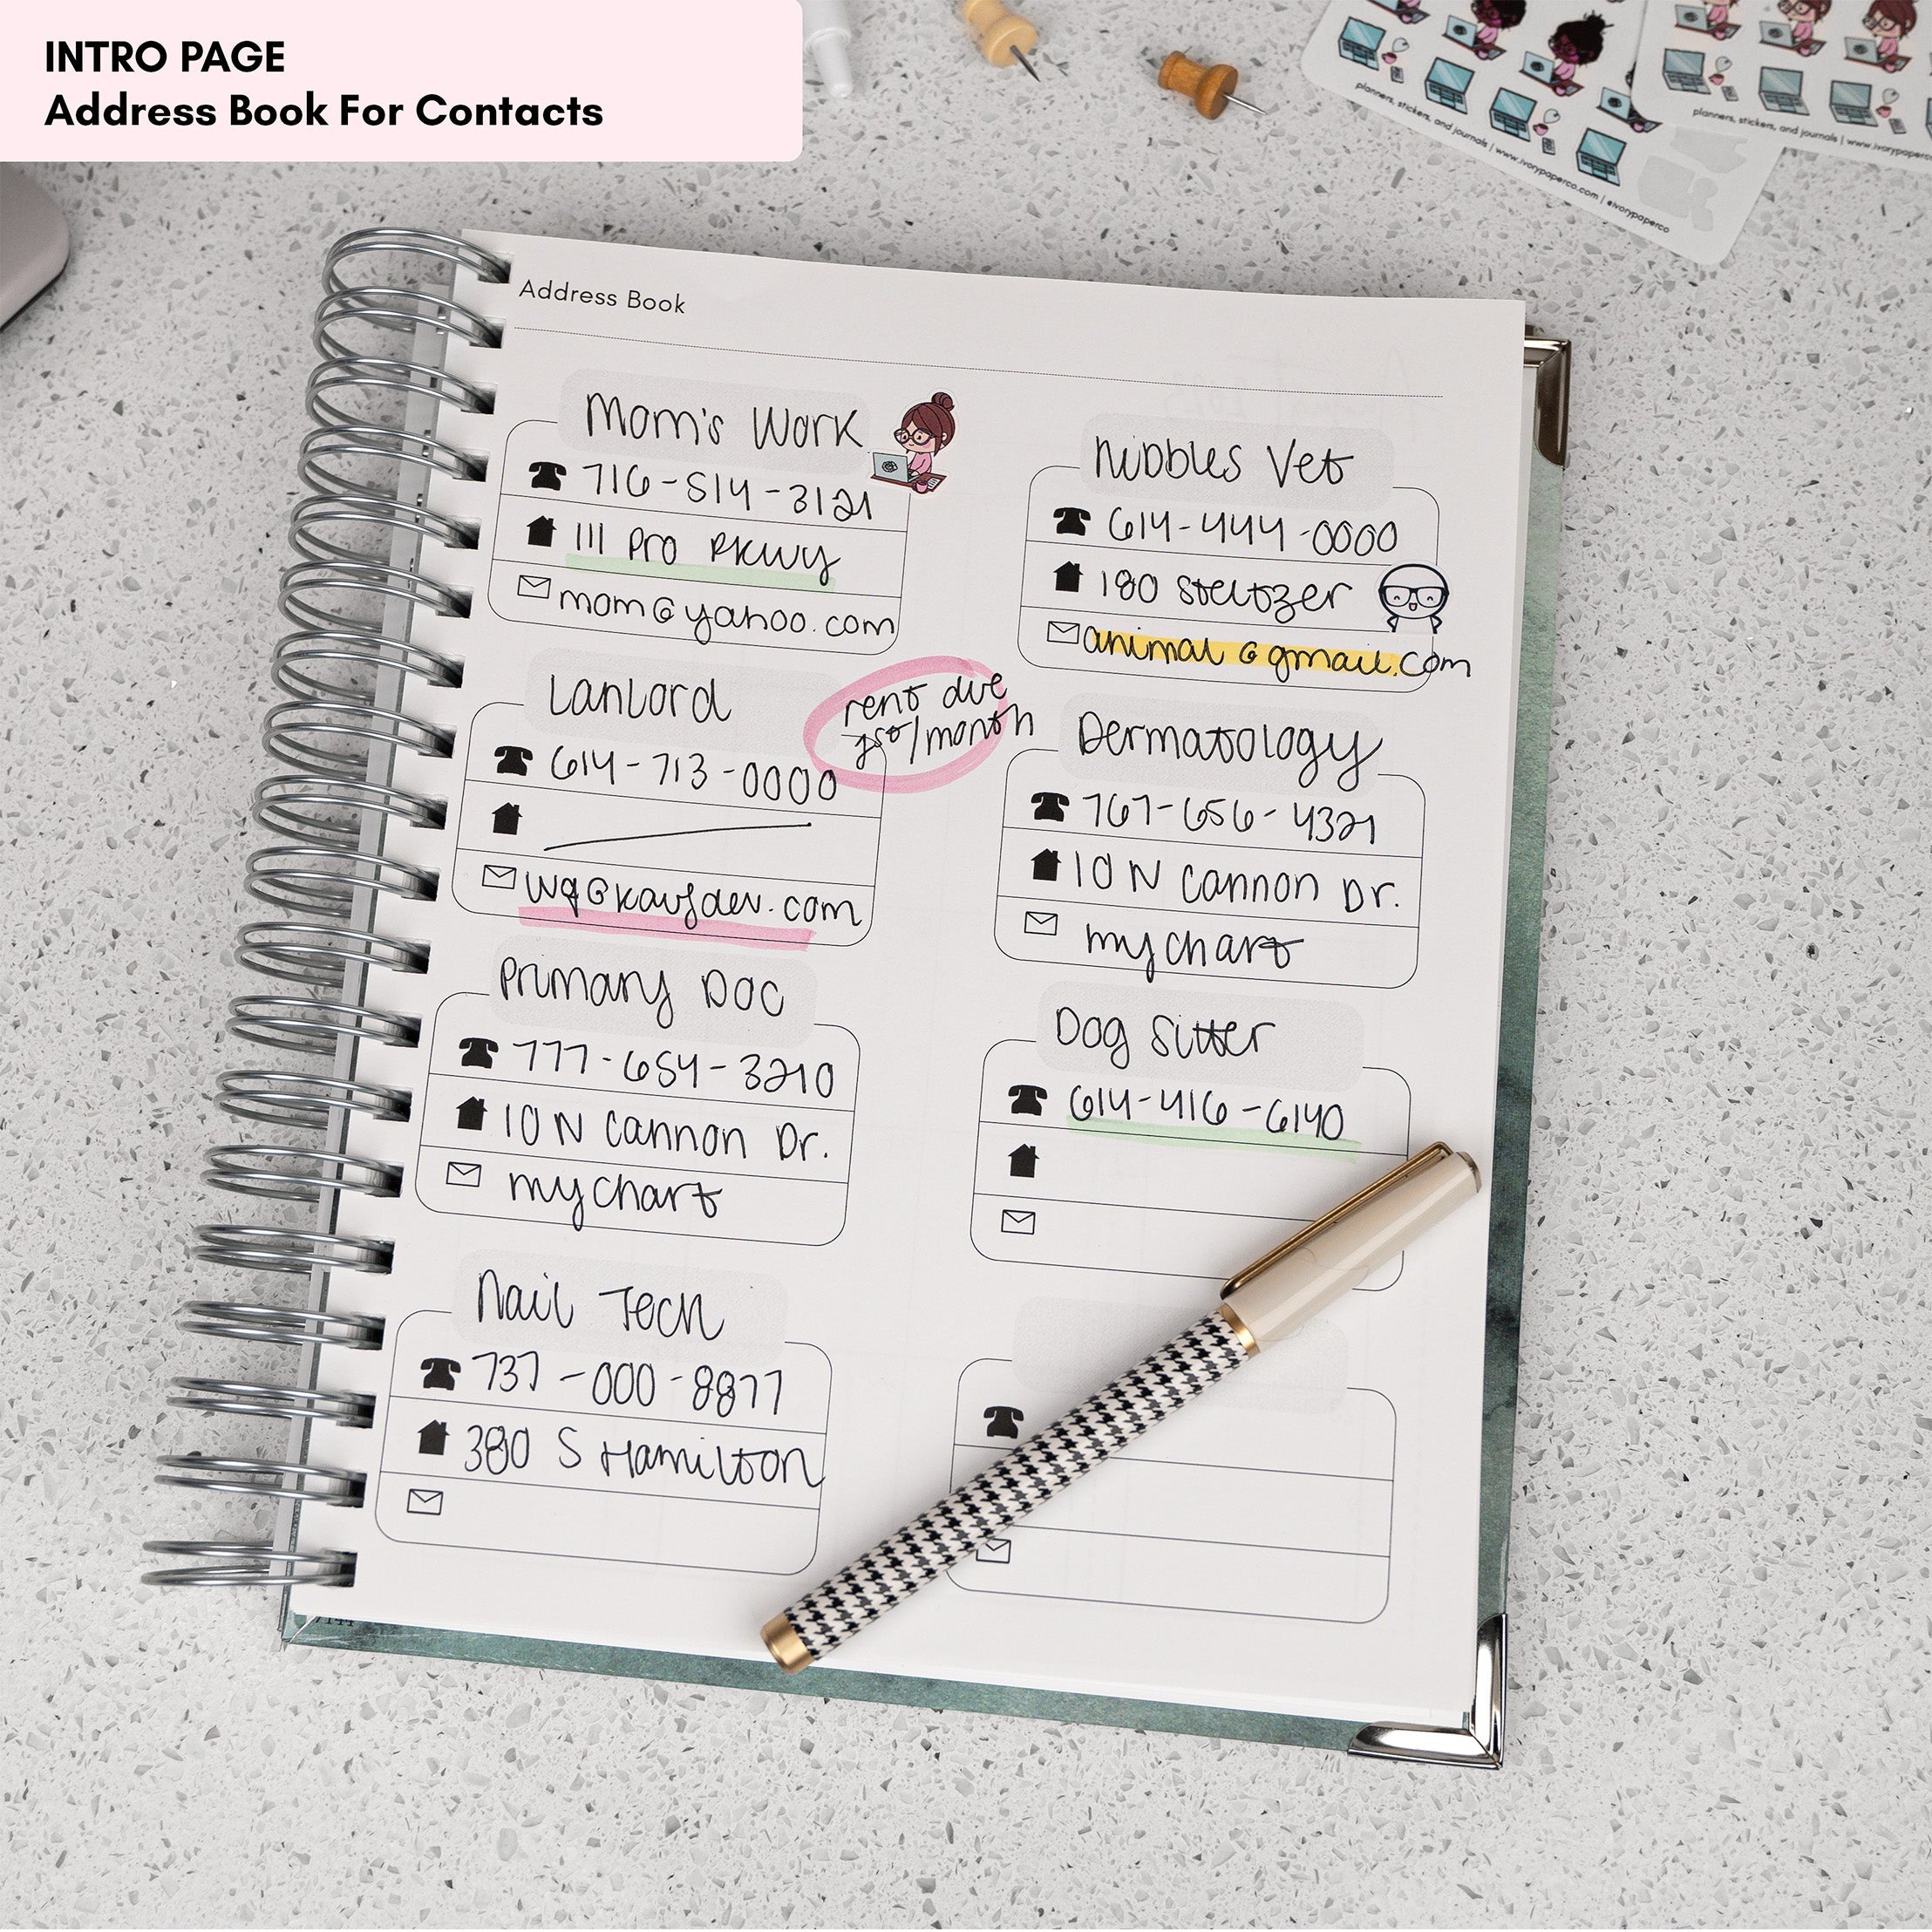 INTRO PAGE
Address Book For Contacts
planners, stickers, and journals | www.ivorypaperco.com | @ivorypaperco
planners, stickers, and journals | www.ivorypaperco
Address Book
Mom's Work
716-514-3121
111 Pro PKWY
mom@yahoo.com
Lanlord
rent due
1st/month
614-713-0000
wq@kaysdev.com
Primary Doc
777-654-3210
10 N Cannon Dr.
mychart
Nail Tech
737-000-8877
380 S Hamilton
Nibbles Vet
614-444-0000
180 Steltzer
animal@gmail.com
Dermatology
767-656-4321
10 N Cannon Dr.
mychart
Dog Sitter
614-416-6140